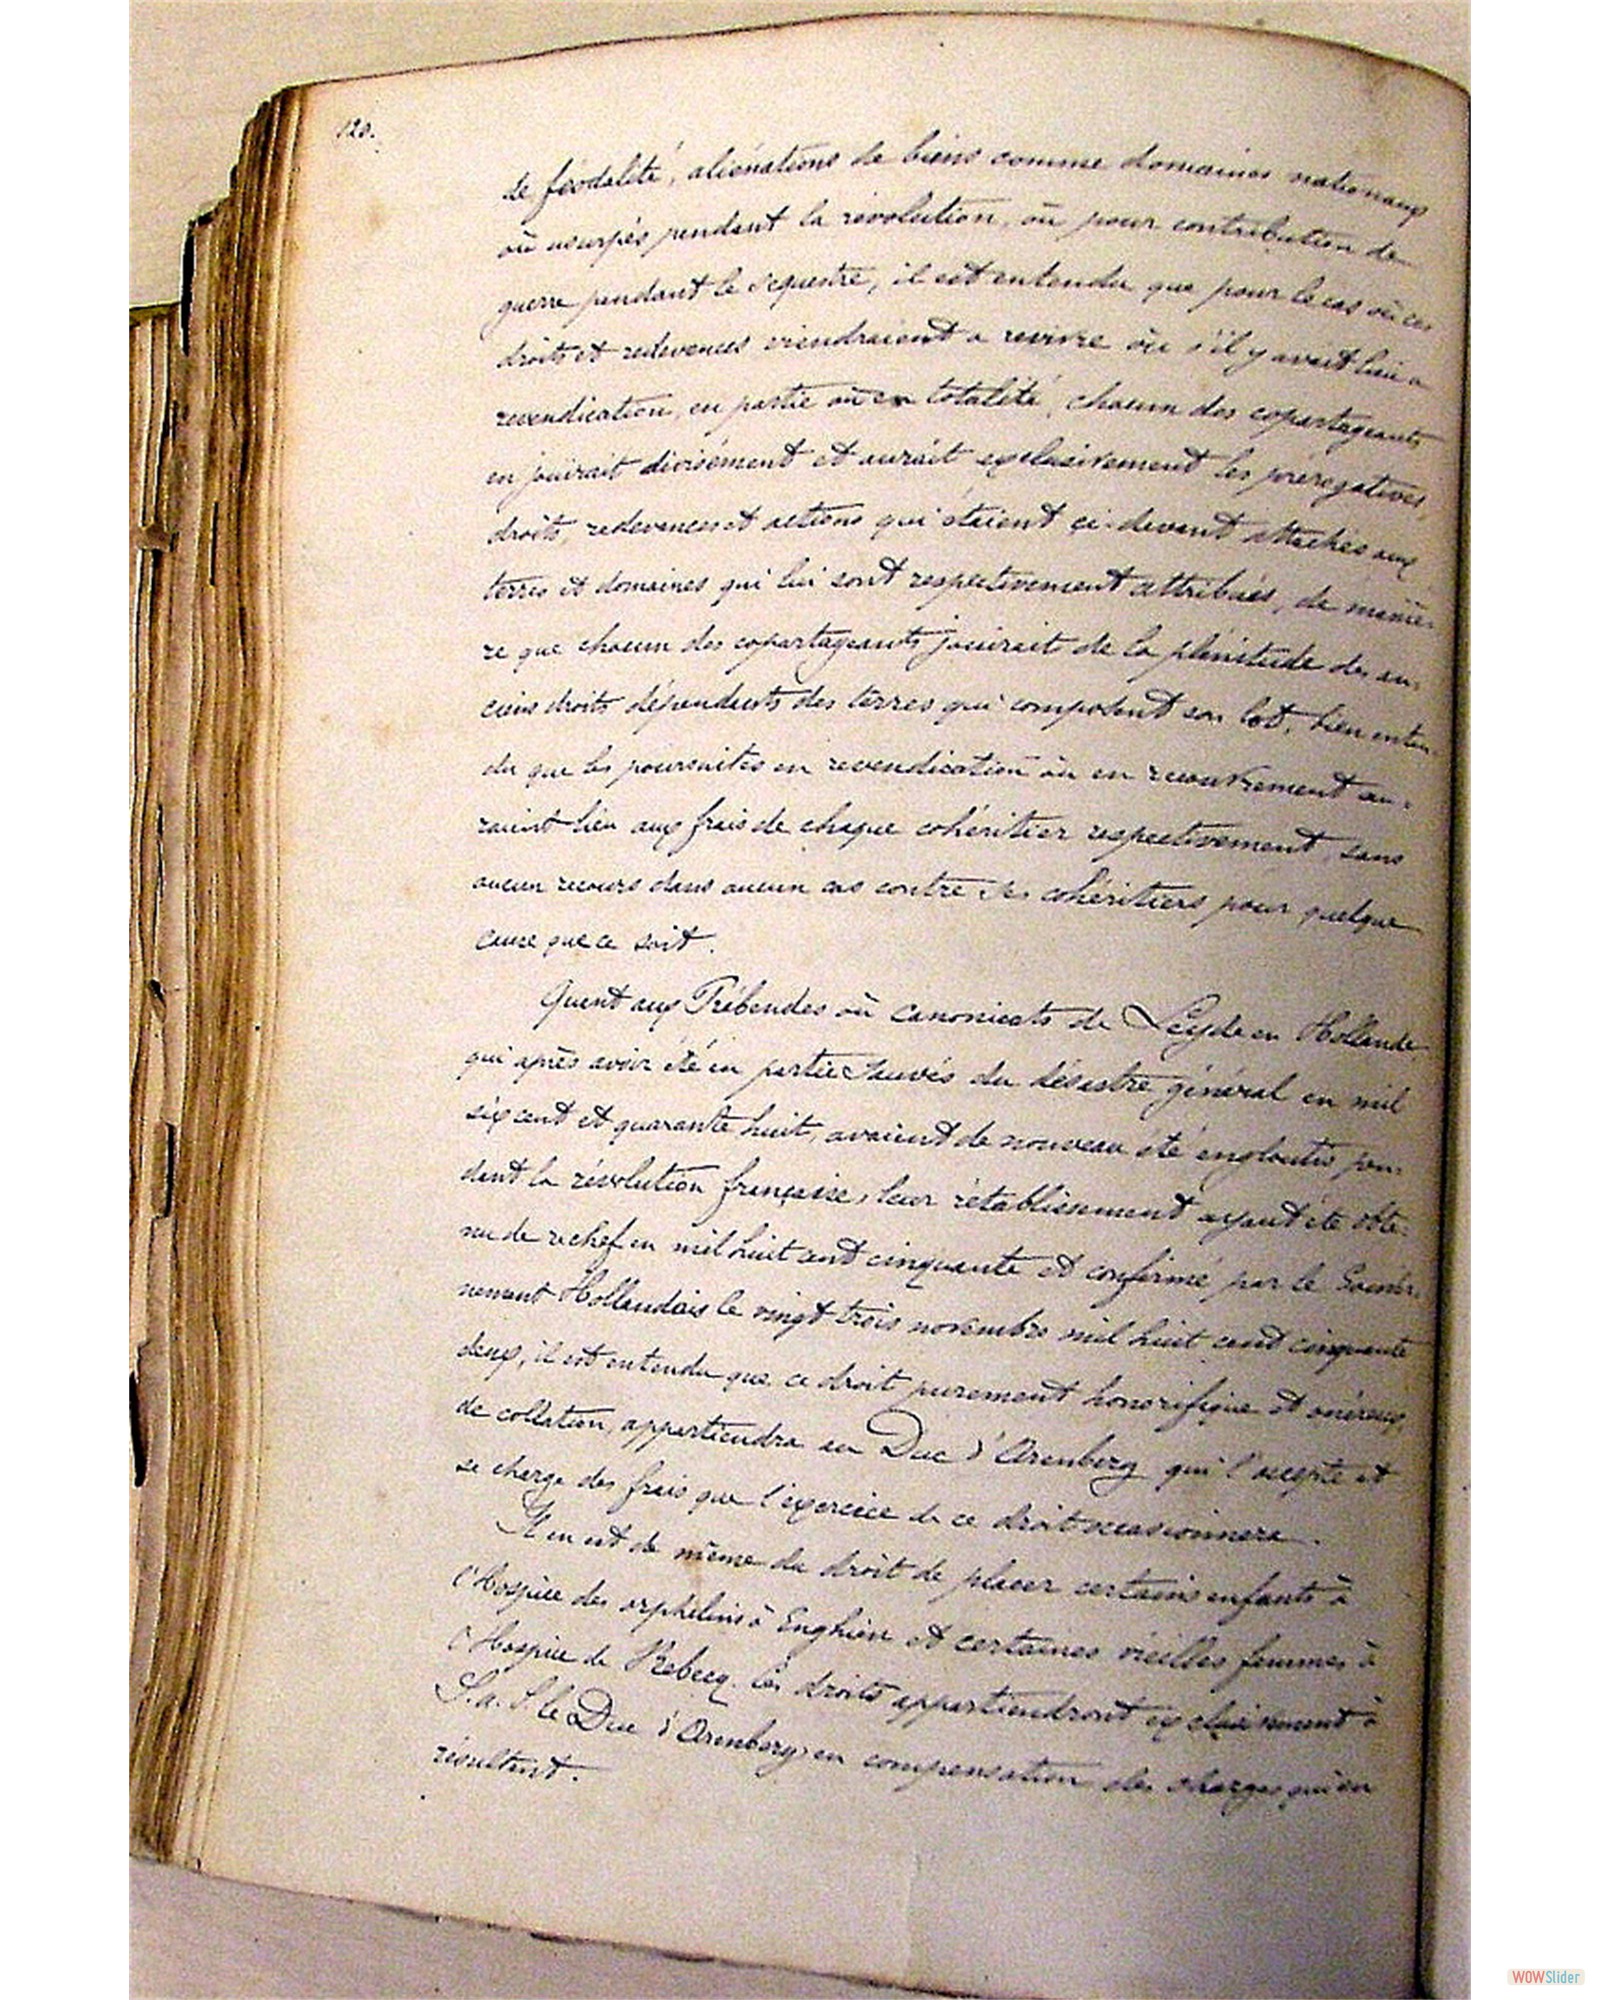 120.
de féodalité, aliénations de biens comme domaines nationaux
où usurpés pendant la révolution, où pour contribution de
guerre pendant le séquestre, il est entendu que pour le cas où ces
droits et redevances viendraient a revivre où s'il y avait lieu a
revendication, en partie où en totalité, chacun des copartageants
en jouirait divisément et aurait exclusivement les prérogatives,
droits, redevances et actions qui étaient ci-devant attachés aux
terres et domaines qui lui sont respectivement attribués, de maniè-
re que chacun des copartageants jouirait de la plénitude des an-
ciens droits dépendants des terres qui composent son lot, bien enten-
du que les poursuites en revendication où en recouvrement au-
raient lieu aux frais de chaque cohéritier respectivement, sans
aucun recours dans aucun cas contre ses cohéritiers pour quelque
cause que ce soit.
Quant aux Prébendes où canonicats de Leyde en Hollande
qui après avoir été en partie sauvés du désastre général en mil
six cent et quarante huit, avaient de nouveau été engloutis pen-
dant la révolution française, leur rétablissement ayant été obte-
nu de rechef en mil huit cent cinquante et confirmé par le Gouver-
nement Hollandais le vingt trois novembre mil huit cent cinquante
deux, il est entendu que ce droit purement honorifique et onéreux,
de collation, appartiendra au Duc d'Arenberg qui l'accepte et
se charge des frais que l'exercice de ce droit occasionnera.
Il en est de même du droit de placer certains enfants à
l'Hospice des orphelins à Enghien et certaines vieilles femmes à
l'Hospice de Rebecq. Ces droits appartiendront exclusivement à
S. A. S. le Duc d'Arenberg en compensation des charges qui en
résultent.
WOWSlider